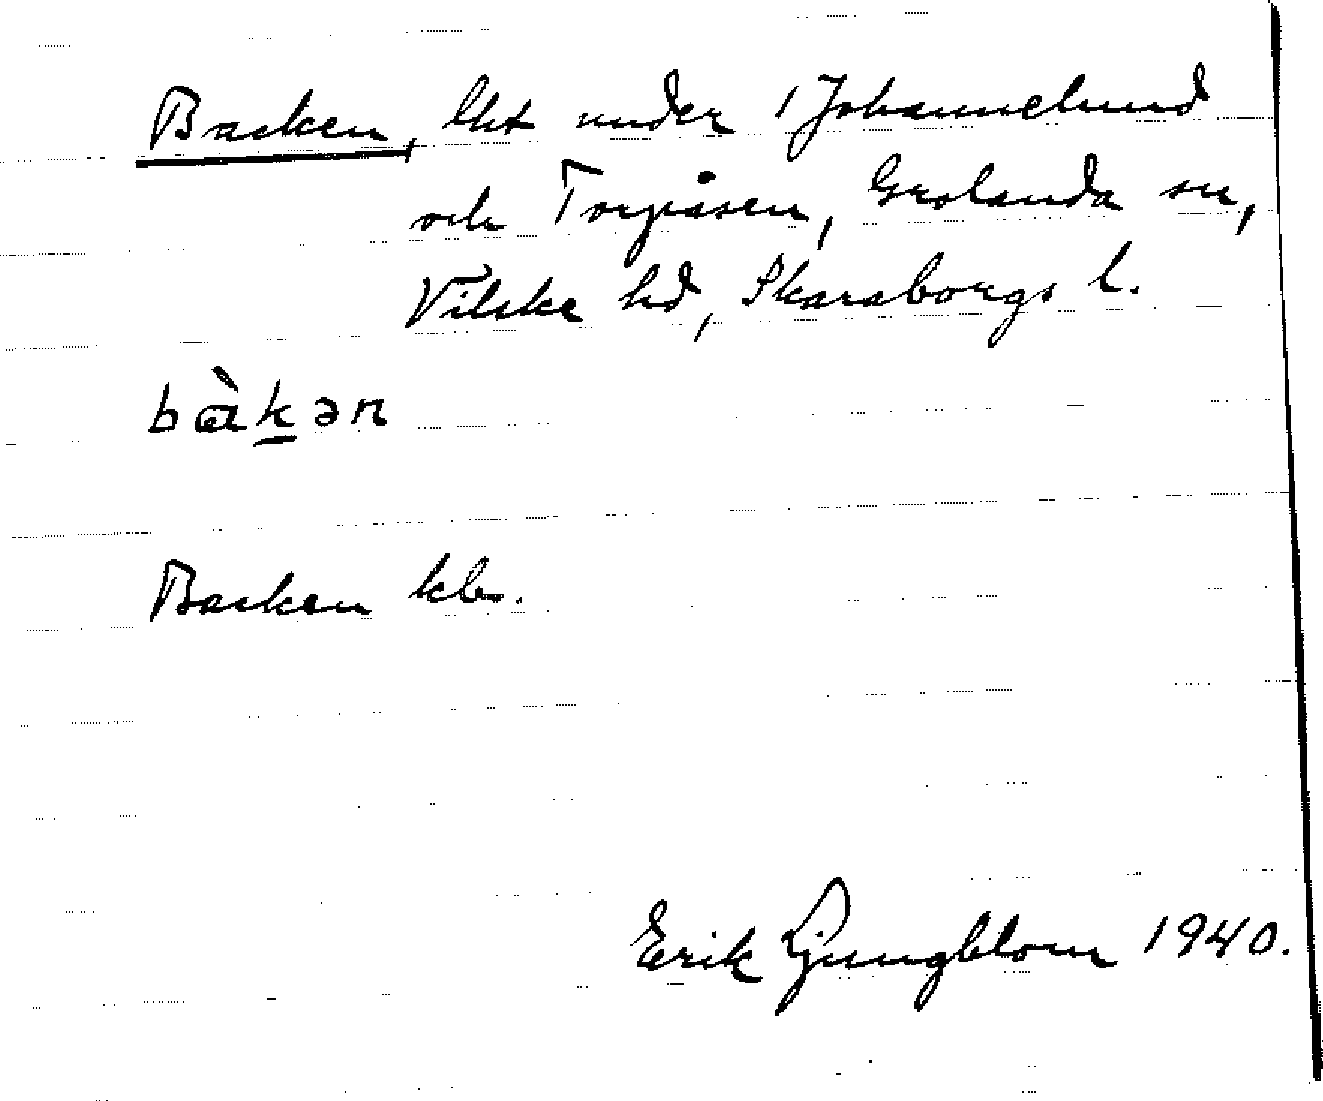 Backen, lht under 1 Johannelund
och Torpåsen, Grolanda sn,
Vilske hd, Skaraborgs l.
bàkən
Backen kb.
Erik Ljungblom 1940.